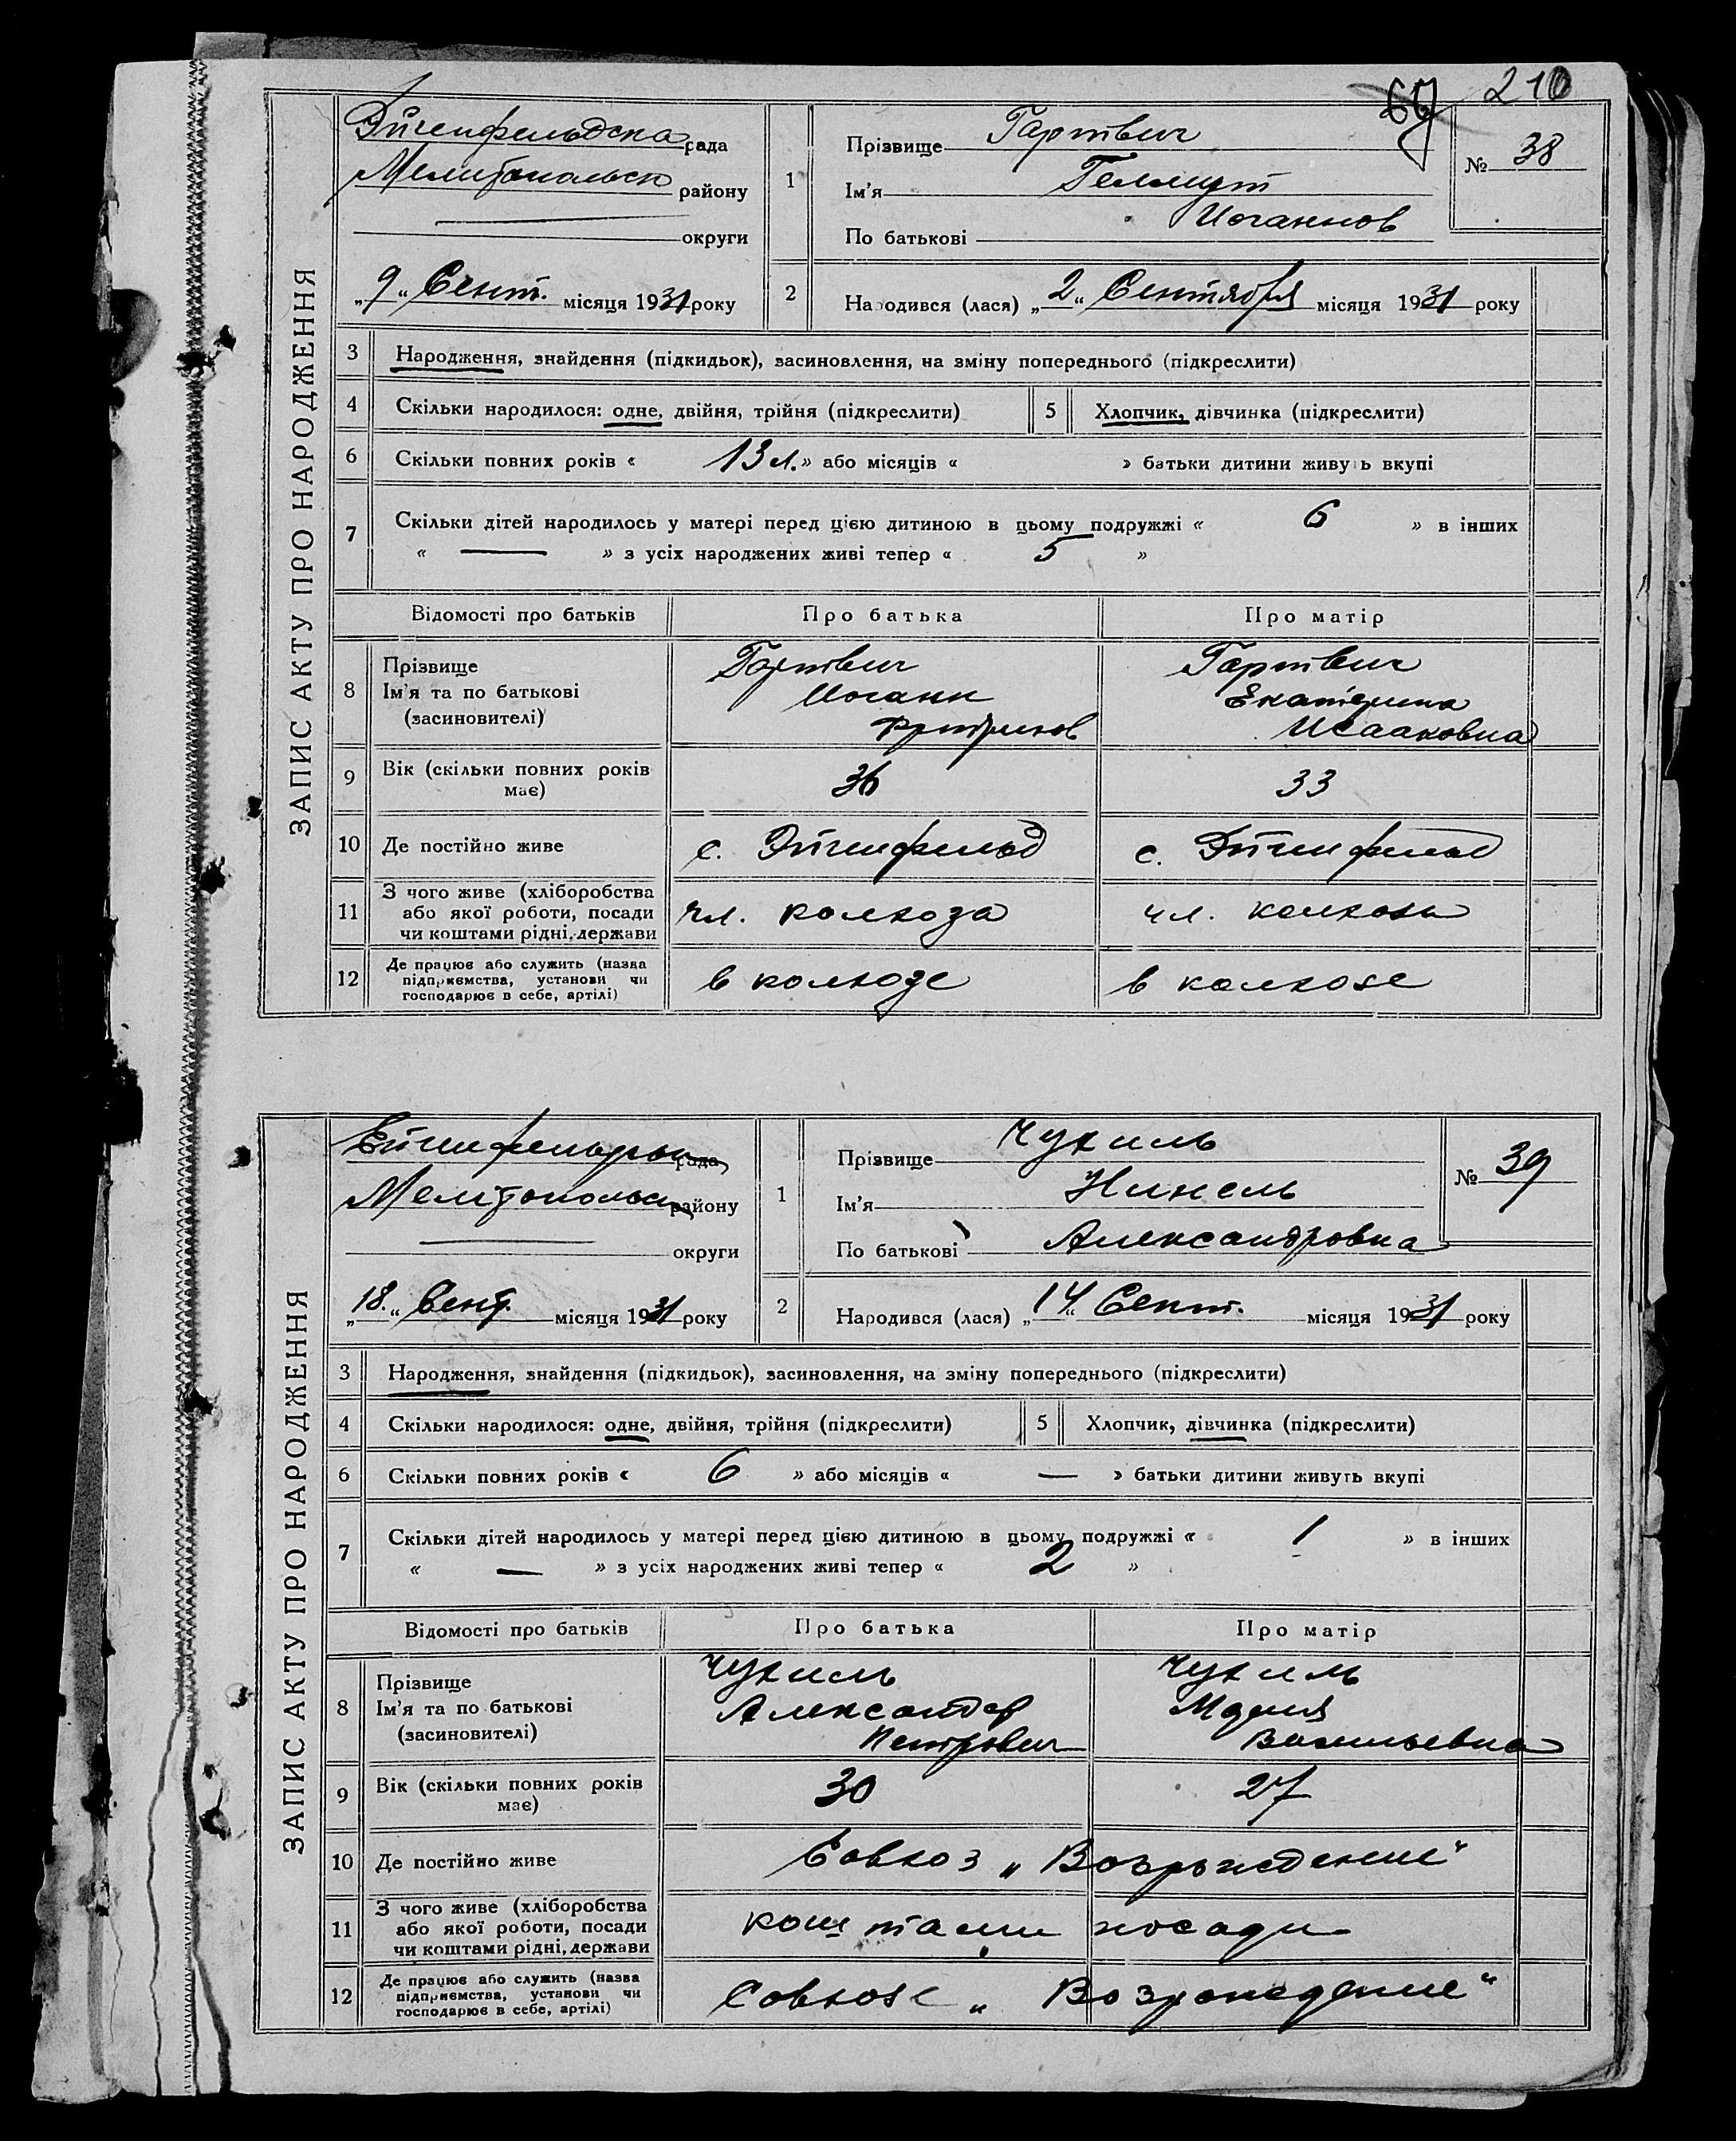 69 210
ЗАПИС АКТУ ПРО НАРОДЖЕННЯ
Эйгенфельдска рада
Мелитопольск району
округи
„9“ Сент. місяця 1931 року
1
Прізвище Гартвич
Ім'я Гелмут
По батькові Иоганнов
№ 38
2
Народився (лася) „2“ Сентября місяця 1931 року
3 Народження, знайдення (підкидьок), засиновлення, на зміну попереднього (підкреслити)
4 Скільки народилося: одне, двійня, трійня (підкреслити) 5 Хлопчик, дівчинка (підкреслити)
6 Скільки повних років « 13 л. » або місяців « » батьки дитини живуть вкупі
7 Скільки дітей народилось у матері перед цією дитиною в цьому подружжі « 6 » в інших
« — » з усіх народжених живі тепер « 5 »
Відомості про батьків Про батька Про матір
8 Прізвище Гартвич Гартвич
Ім'я та по батькові Иоганн Екатерина
(засиновителі) Исааковна
9 Вік (скільки повних років має) 36 33
10 Де постійно живе с. Эйгенфельд с. Эйгенфельд
11 З чого живе (хліборобства
або якої роботи, посади чл. колхоза чл. колхоза
чи коштами рідні, держави
12 Де працює або служить (назва
підприємства, установи чи в колхозе в колхозе
господарює в себе, артілі)
ЗАПИС АКТУ ПРО НАРОДЖЕННЯ
рада
району
округи
„18.“ Сент. місяця 1931 року
1
Прізвище Чухиль
Ім'я Нинель
По батькові Александровна
№ 39
2
Народився (лася) „14“ Сент. місяця 1931 року
3 Народження, знайдення (підкидьок), засиновлення, на зміну попереднього (підкреслити)
4 Скільки народилося: одне, двійня, трійня (підкреслити) 5 Хлопчик, дівчинка (підкреслити)
6 Скільки повних років « 6 » або місяців « — » батьки дитини живуть вкупі
7 Скільки дітей народилось у матері перед цією дитиною в цьому подружжі « 1 » в інших
« — » з усіх народжених живі тепер « 2 »
Відомості про батьків Про батька Про матір
8 Прізвище Чухиль Чухиль
Ім'я та по батькові Александр Мария
(засиновителі) Петрович Васильевна
9 Вік (скільки повних років має) 30 27
10 Де постійно живе Совхоз „Возрождение“
11 З чого живе (хліборобства
або якої роботи, посади коштами посади
чи коштами рідні, держави
12 Де працює або служить (назва
підприємства, установи чи Совхозе „Возрождение“
господарює в себе, артілі)